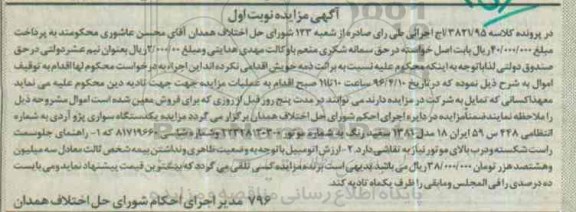 آگهی مزایده نوبت اول
در پرونده کلاسه ۳۸۲۱/۹۵/اج اجرائی طی رای صادره از شعبه ۱۲۳ شورای حل اختلاف همدان آقای محسن عاشوری محکومند به پرداخت
مبلغ ۴۰/۰۰۰/۰۰۰ ریال بابت اصل خواسته در حق سمانه شکری متمم با وکالت مهدی هدایتی ومبلغ ۲/۰۰۰/۰۰۰ ریال بعنوان نیم عشر دولتی در حق
صندوق دولتی لذا باتوجه به اینکه محکوم علیه نسبت به برائت ذمه خویش اقدامی نکرده اند این اجراء بدرخواست محکوم لها اقدام به توقیف
اموال به شرح ذیل نموده که در تاریخ ۹۶/۴/۱۰ ساعت ۱۰ تا ۱۱ صبح اقدام به عملیات مزایده جهت تادیه دین محکوم علیه می نماید
معهذا کسانی که تمایل به شرکت در مزایده دارند می توانند در مدت پنج روز قبل از روزی که برای فروش معین شده است اموال مشروحه ذیل
را ملاحظه نمایند ضمناً مزایده در دایره اجرای احکم شورای حل اختلاف همدان برگزار می گردد مزایده یکدستگاه سواری پژو آردی به شماره
انتظامی ۴۴۸ س ۵۹ ایران ۱۸ مدل ۱۳۸۱ سفید رنگ به شماره موتور ۲۲۳۲۸۱۲۰۳۰ وشماره شاسی ۸۱۷۱۹۶۶۰ که ۱- راهنمای جلو سمت
راست شکسته و درب بالای موتور نیاز به نقاشی دارد ۲- ارزش اتومبیل باتوجه به وضعیت ظاهری و نداشتن بیمه شخص ثالث معادل سه میلیون
وهشتصد هزار تومان ۳۸/۰۰۰/۰۰۰ ریال می باشد بدیهی است برنده مزایده کسی تلقی می گردد که بیشترین قیمت پیشنهاد نماید ومی بایست
ده درصدی رافی المجلس ومابقی را ظرف یکماه تادیه کند.
۷۹۶ مدیر اجرای احکام شورای حل اختلاف همدان
پایگاه اطلاع رسانی مناقصه و مزایده